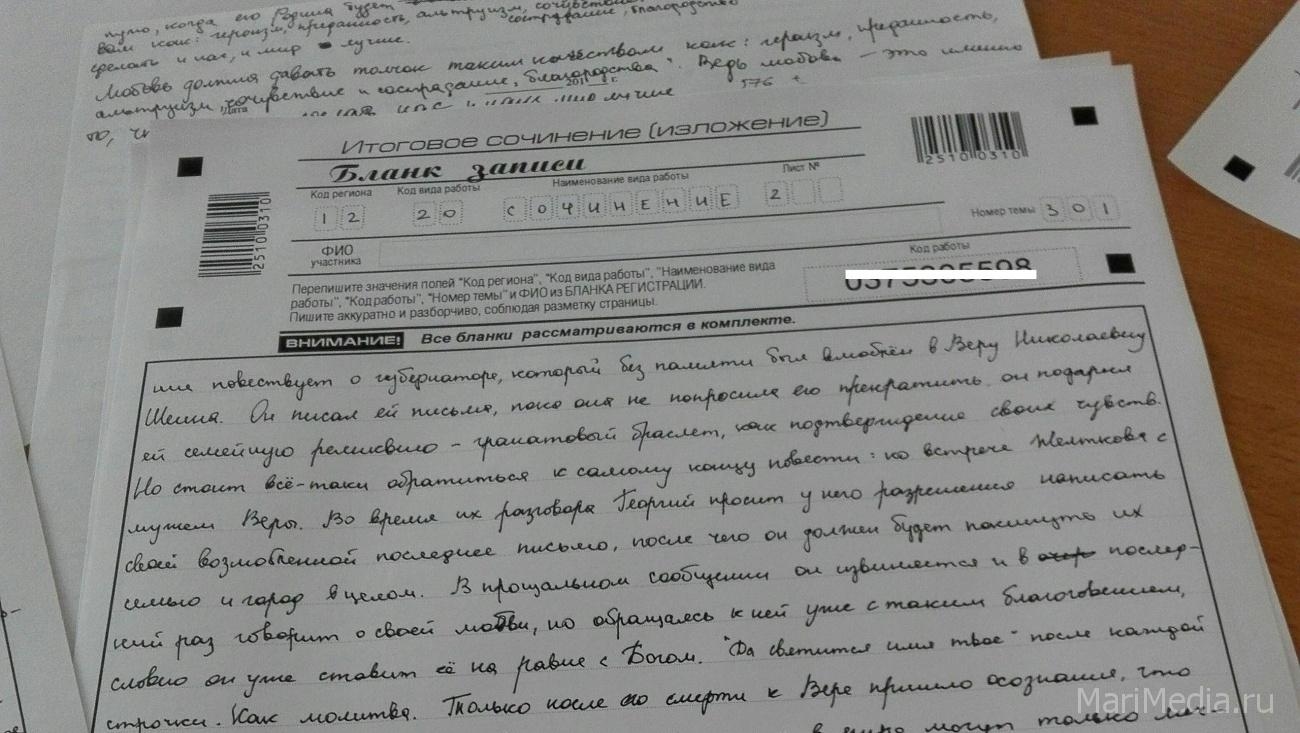 пито, когда его Родина будет
вом как: героизм, преданность, альтруизм, сочувствие
сострадание, благородство
сделать и нас, и мир лучше.
Любовь должна давать толчок таким качествам как: героизм, преданность,
альтруизм, сочувствие и сострадание, благородства". Ведь любовь – это именно
то,
лучше
576
Итоговое сочинение (изложение)
Бланк записи
2510 0310
Код региона Код вида работы Наименование вида работы Лист №
12 20 СОЧИНЕНИЕ 2
2510 0310
Номер темы 301
ФИО
участника
Код работы
Перепишите значения полей "Код региона", "Код вида работы", "Наименование вида
работы", "Код работы", "Номер темы" и ФИО из БЛАНКА РЕГИСТРАЦИИ.
Пишите аккуратно и разборчиво, соблюдая разметку страницы.
ВНИМАНИЕ! Все бланки рассматриваются в комплекте.
ина повествует о губернаторе, который без памяти был влюблён в Веру Николаевну
Шеина. Он писал ей письма, пока она не попросила его прекратить. он подарил
ей семейную реликвию – гранатовый браслет, как подтверждение своих чувств.
Но стоит всё-таки обратиться к самому концу повести: ко встрече Желткова с
мужем Веры. Во время их разговора Георгий просит у него разрешения написать
своей возлюбленной последнее письмо, после чего он должен будет покинуть их
семью и город в целом. В прощальном сообщении он извиняется и в послед-
ний раз говорит о своей любви, но обращаясь к ней уже с таким благоговением,
словно он уже ставит её на равне с Богом. "Да святится имя твоё" после каждой
строчки. Как молитва. Только после его смерти к Вере пришло осознание, что
могут только
MariMedia.ru